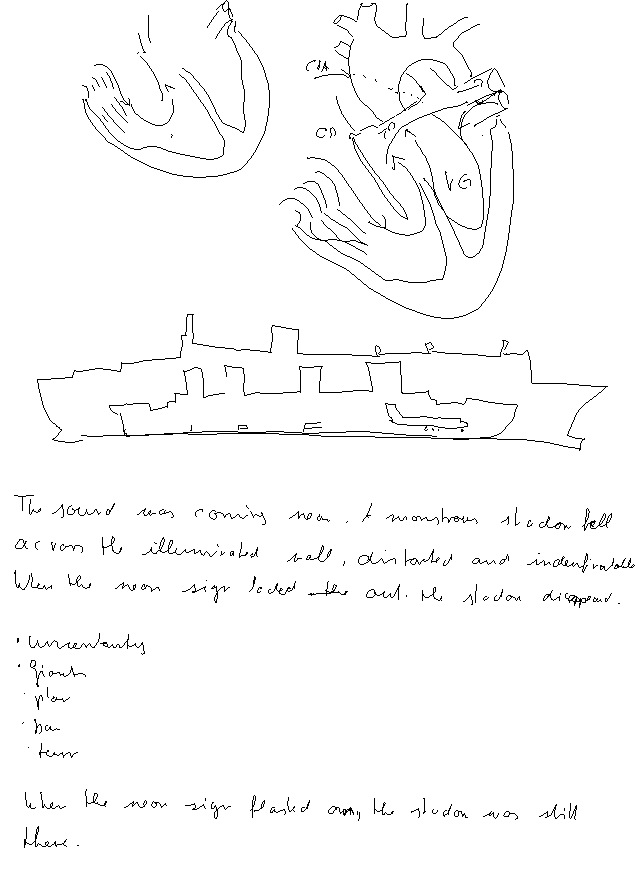 CIA
CD
VG
The sound was coming near. A monstrous shadow fell
across the illuminated wall, distorted and
When the neon sign faded the out. the shadow disappeared.
• uncertainty
• Giants
• plan
• terror
When the neon sign flashed the shadow was still
there.